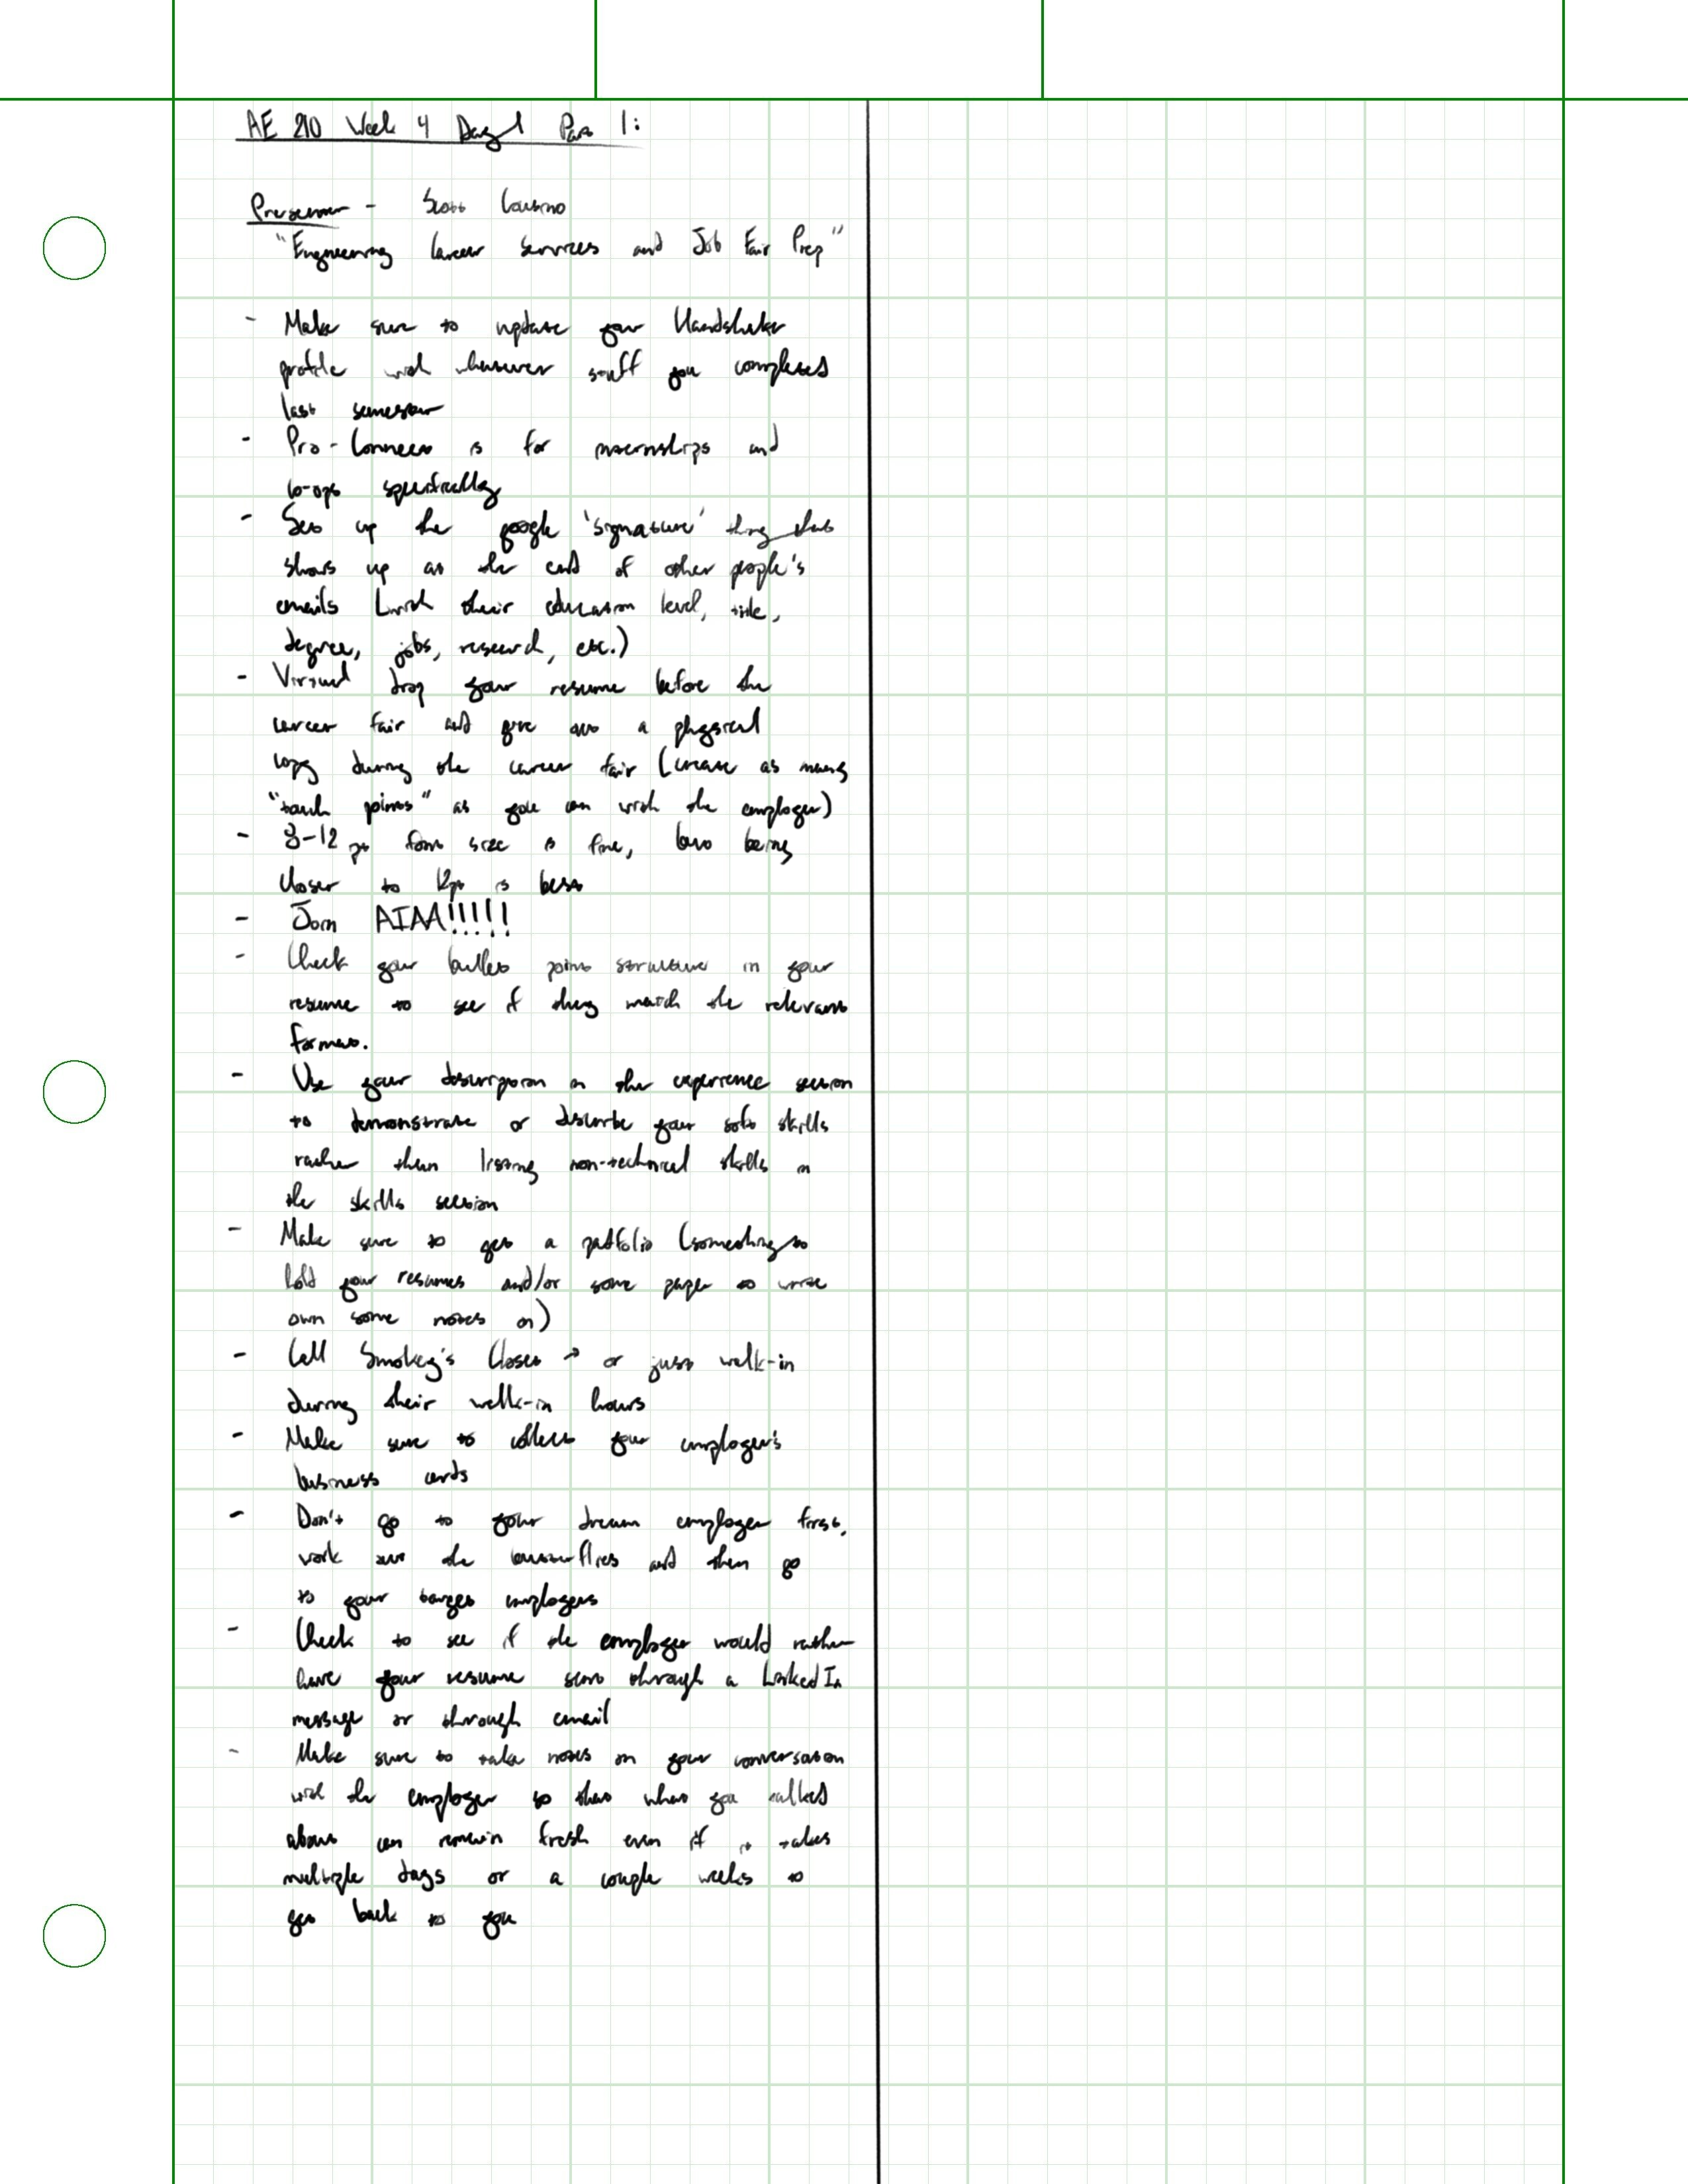 AE 210 Week 4 Day 1 Part 1:
Presenter - Scott
"Engineering Career Services and Job Fair Prep"
- Make sure to update your Handshake
profile with whatever stuff you completed
last semester
- Pro-Connect is for internships and
co-ops specifically
- Set up the google 'signature' thing that
shows up at the end of other people's
emails (with their education level, title,
degree, jobs, research, etc.)
- Virtual drop your resume before the
career fair and give out a physical
copy during the career fair (create as many
"touch points" as you can with the employer)
- 8-12 pt font size is fine, but being
closer to 12pt is best
- Join AIAA!!!!!
- Check your bullet point structure in your
resume to see if they match the relevant
format.
- Use your description in the experience section
to demonstrate or describe your soft skills
rather than listing non-technical skills in
the skills section
- Make sure to get a padfolio (something to
hold your resumes and/or some paper to write
own some notes on)
- Call Smokey's Closet → or just walk-in
during their walk-in hours
- Make sure to collect your employer's
business cards
- Don't go to your dream employer first,
work out the butterflies and then go
to your target employers
- Check to see if the employer would rather
have your resume sent through a LinkedIn
message or through email
- Make sure to take notes on your conversation
with the employer so that what you talked
about can remain fresh even if it takes
multiple days or a couple weeks to
get back to you